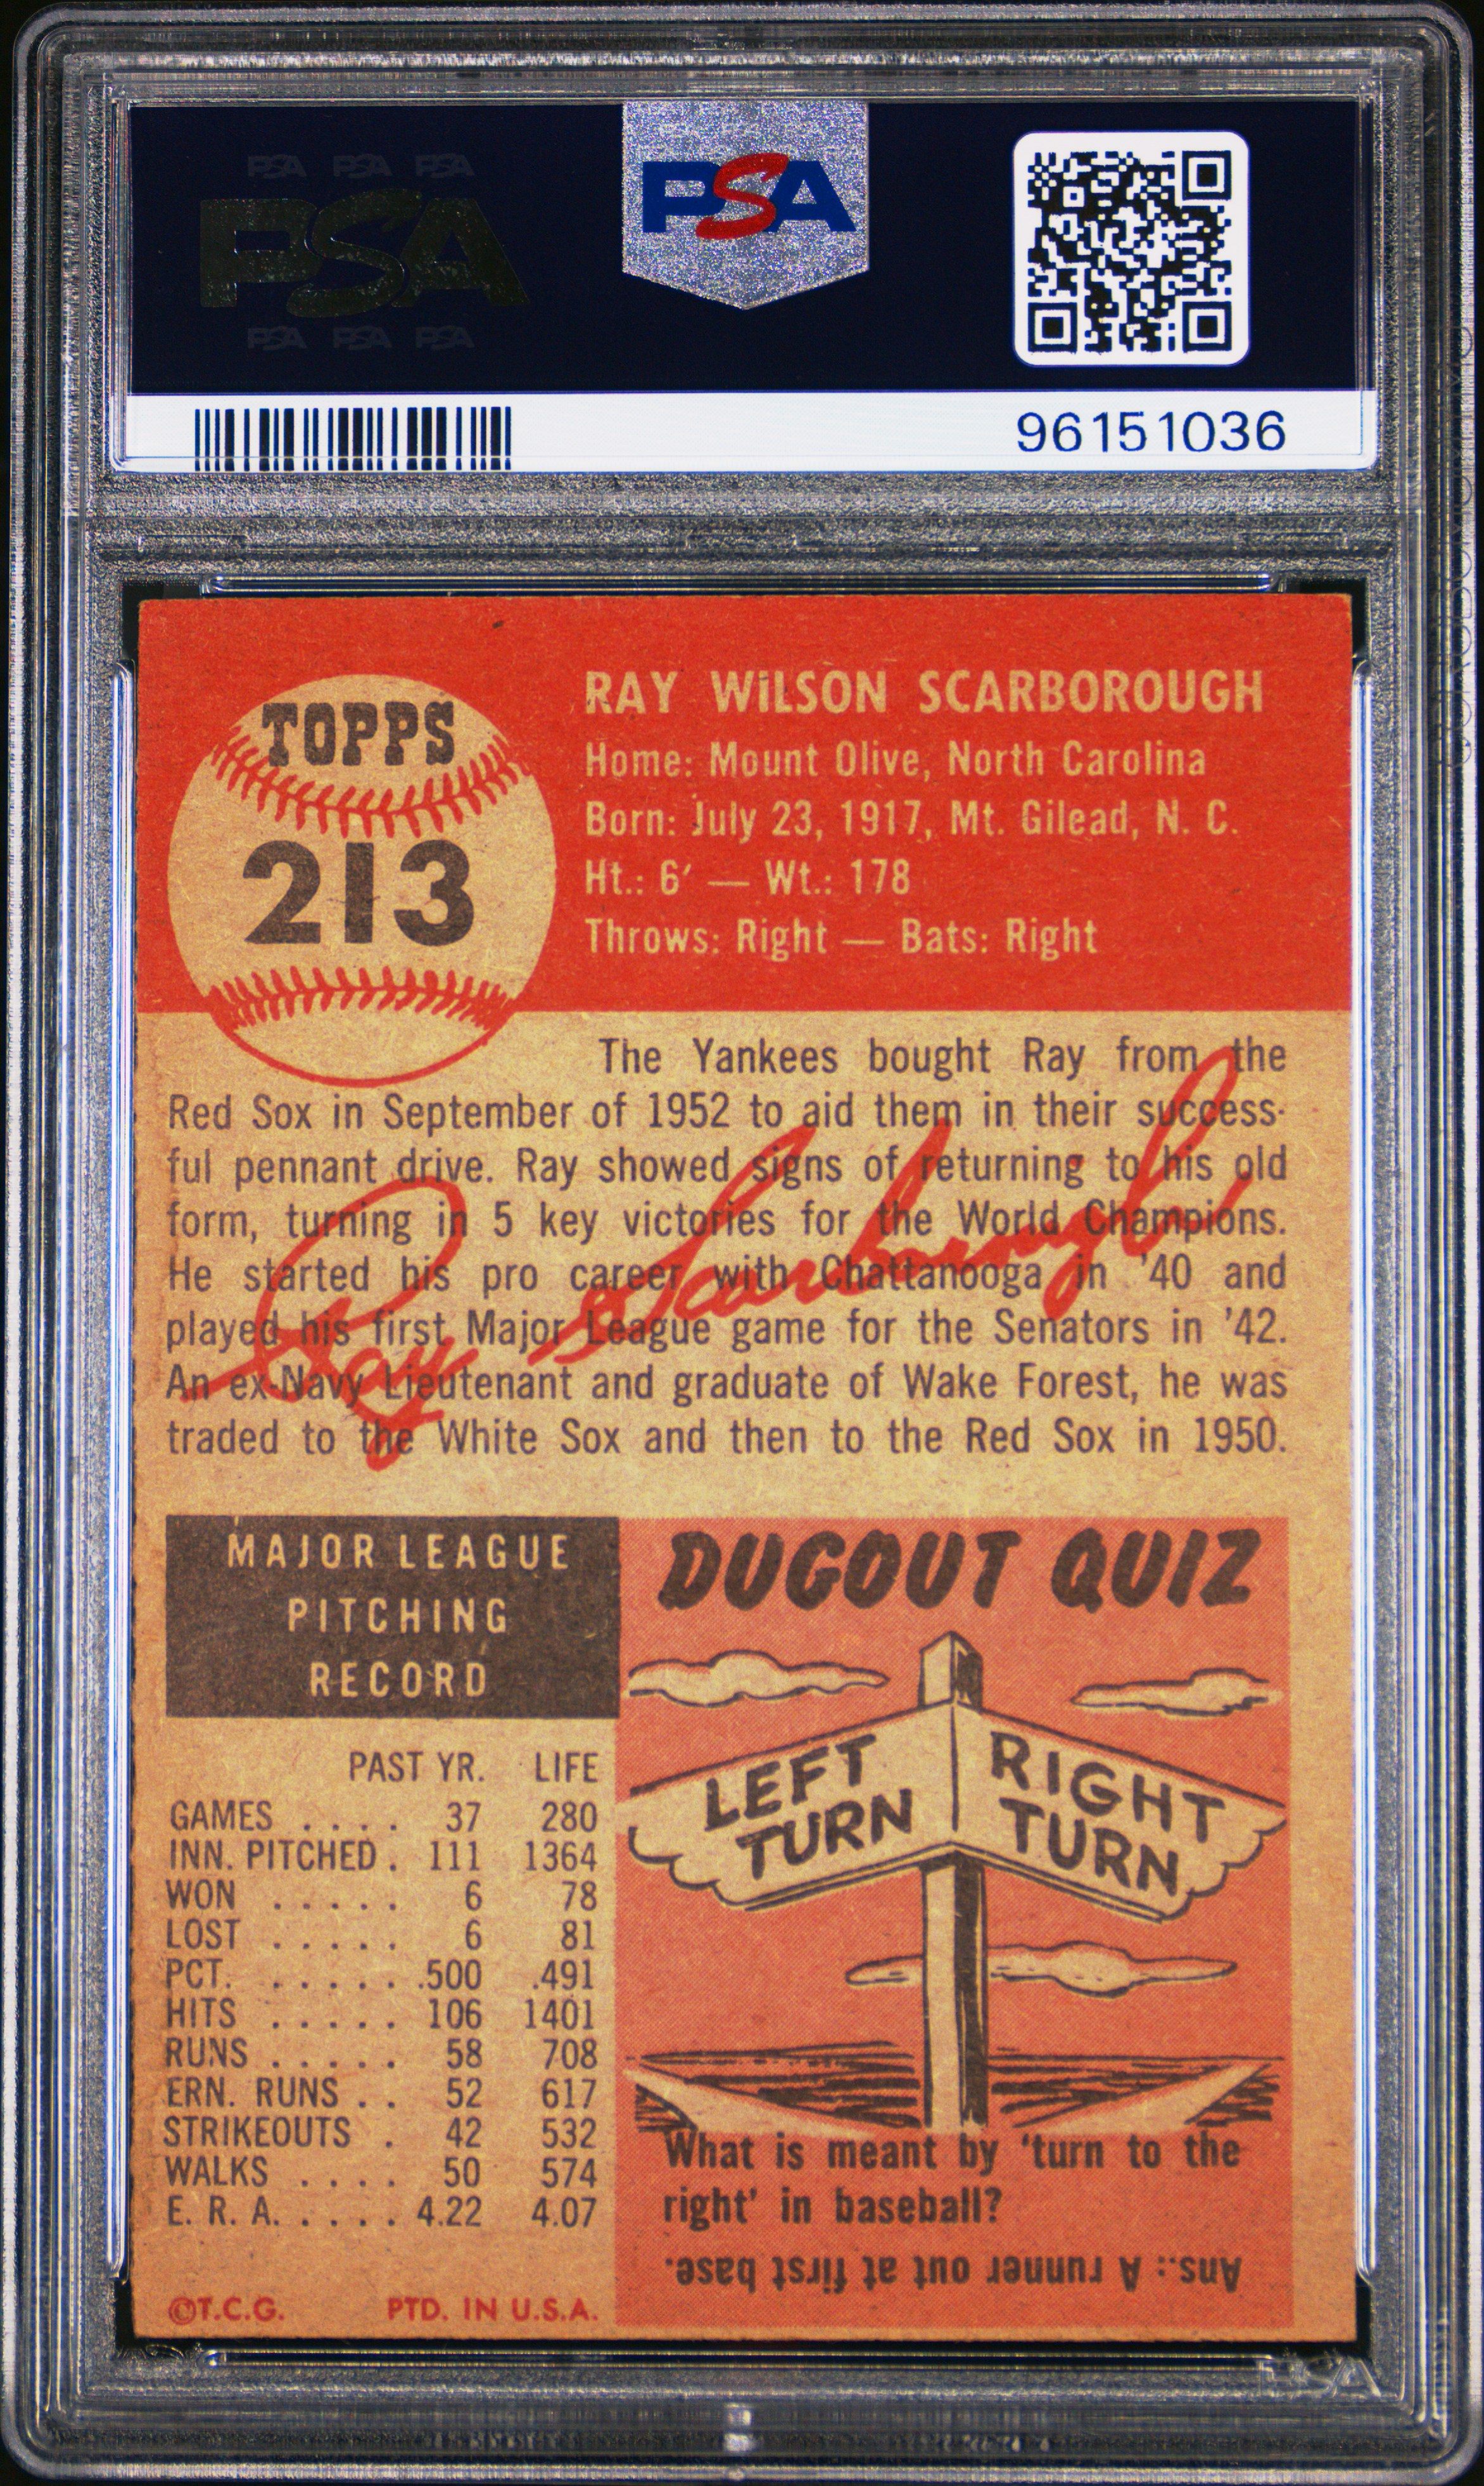 PSA PSA PSA
PSA
PSA PSA PSA
PSA
96151036
TOPPS
213
RAY WILSON SCARBOROUGH
Home: Mount Olive, North Carolina
Born: July 23, 1917, Mt. Gilead, N. C.
Ht.: 6′ — Wt.: 178
Throws: Right — Bats: Right
The Yankees bought Ray from the
Red Sox in September of 1952 to aid them in their success-
ful pennant drive. Ray showed signs of returning to his old
form, turning in 5 key victories for the World Champions.
He started his pro career with Chattanooga in '40 and
played his first Major League game for the Senators in '42.
An ex-Navy Lieutenant and graduate of Wake Forest, he was
traded to the White Sox and then to the Red Sox in 1950.
Ray Scarborough
MAJOR LEAGUE
PITCHING
RECORD
PAST YR. LIFE
GAMES . . . . 37 280
INN. PITCHED . 111 1364
WON . . . . . 6 78
LOST . . . . . 6 81
PCT. . . . . . .500 .491
HITS . . . . . 106 1401
RUNS . . . . . 58 708
ERN. RUNS . . 52 617
STRIKEOUTS . 42 532
WALKS . . . . 50 574
E. R. A. . . . . 4.22 4.07
©T.C.G. PTD. IN U.S.A.
DUGOUT QUIZ
LEFT
TURN
RIGHT
TURN
What is meant by 'turn to the
right' in baseball?
Ans.: A runner out at first base.
PSA